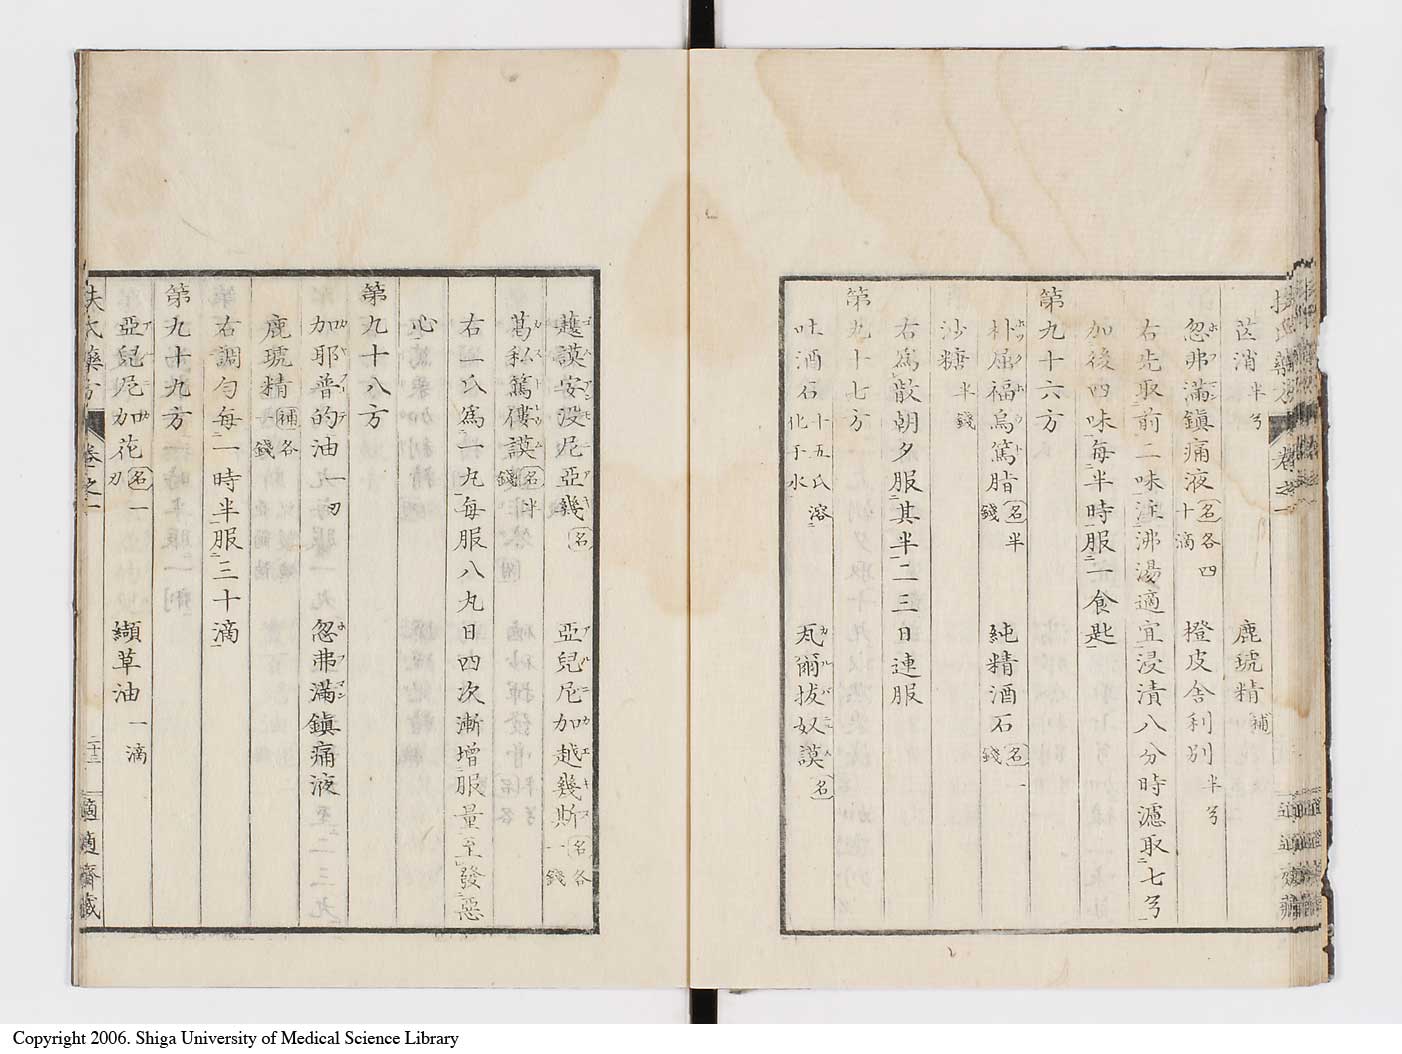 芒消 半兮 鹿琥精 補
忽弗滿鎭痛液 名各四十滴 橙皮舍利別 半兮
右先取前二味注沸湯適宜浸漬八分時濾取七兮
加後四味每半時服一食匙
第九十六方
朴屈福烏篤脂 名半錢 純精酒石 名一錢
沙糖 半錢
右爲散朝夕服其半二三日連服
第九十七方
吐酒石 十五氏溶化于水 瓦爾拔奴謨 名
護謨安没尼亞幾 名 亞兒尼加越幾斯 名各一錢
葛私篤僂謨 名半錢
右二氏爲一丸每服八丸日四次漸增服量至發惡
心
第九十八方
加耶普的油 一匁 忽弗滿鎭痛液
鹿琥精 補各錢
右調勻每一時半服三十滴
第九十九方
亞兒尼加花 名一刀 纈草油 一滴
扶氏藥方 卷之一 二十三 適適齋藏
Copyright 2006. Shiga University of Medical Science Library